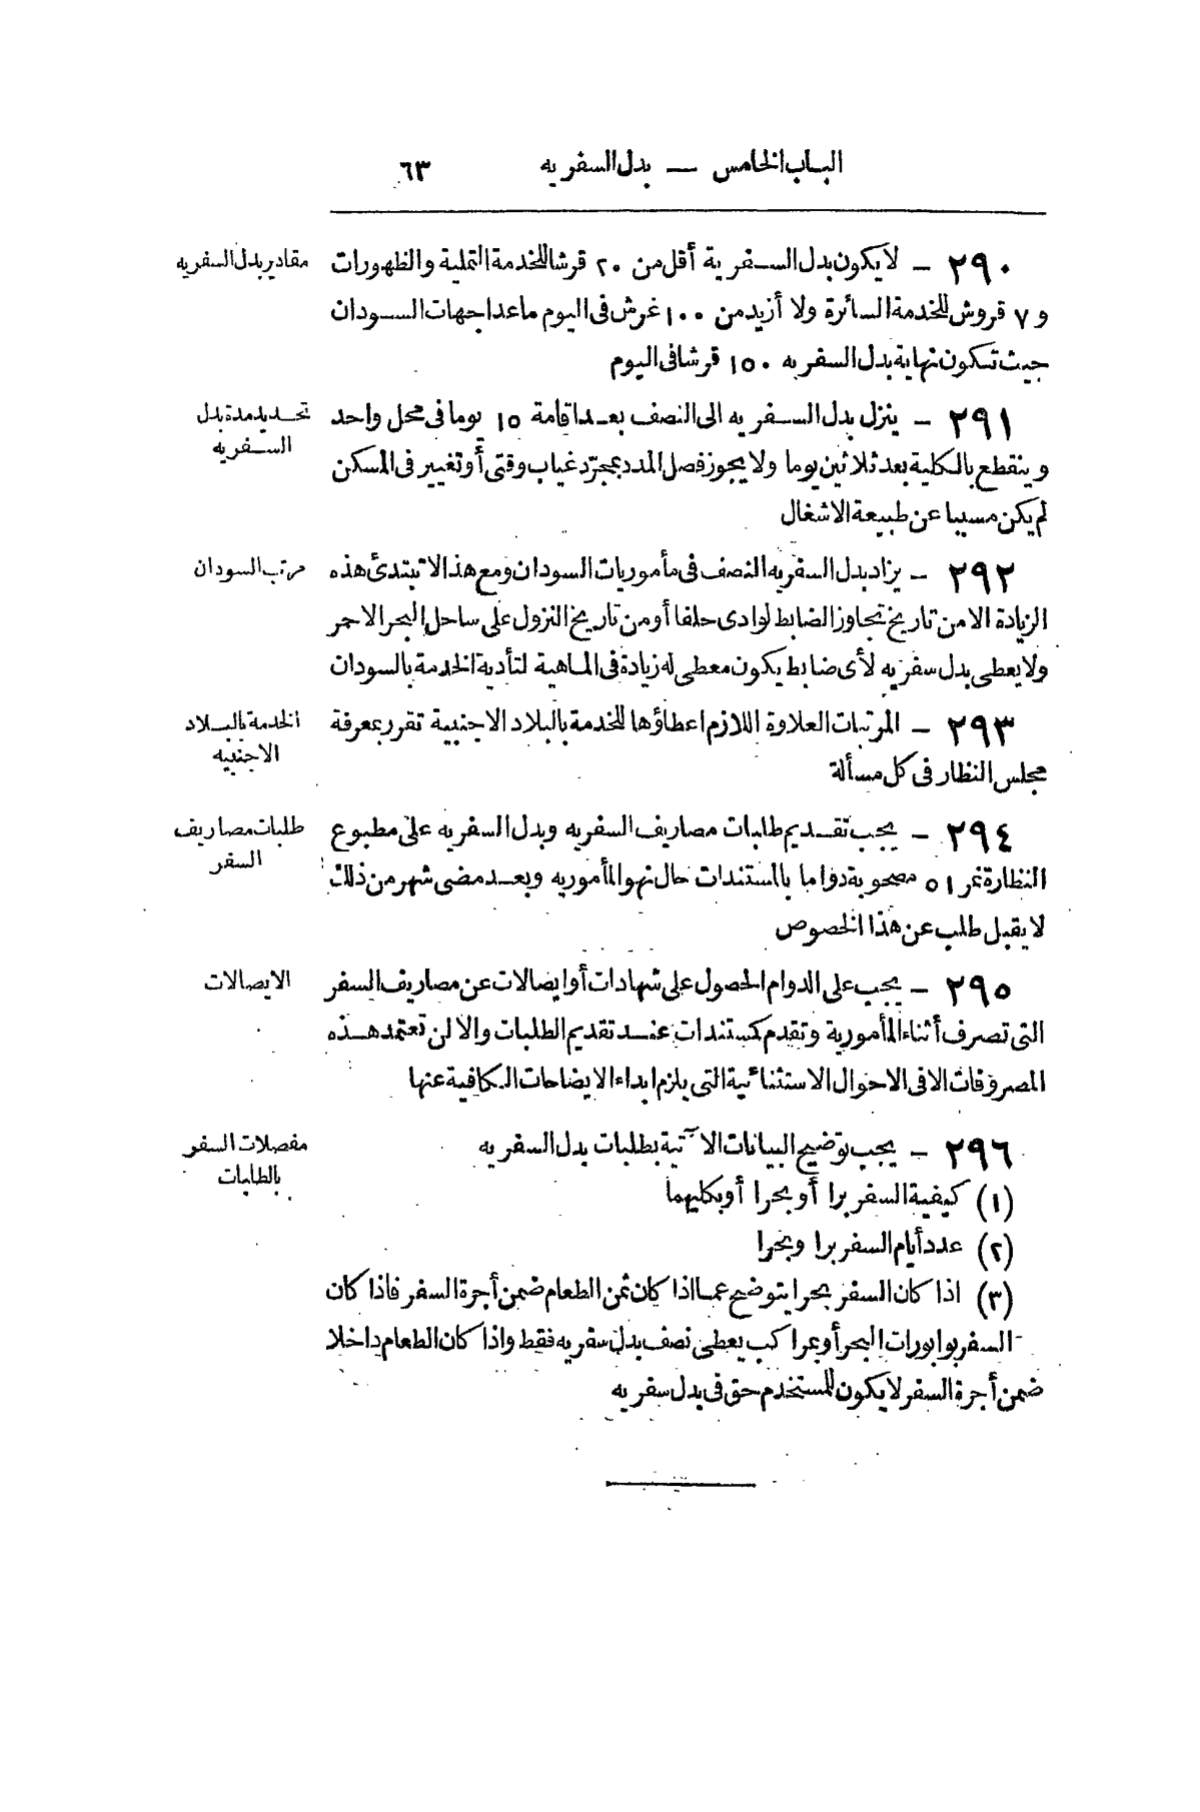 الباب الخامس — بدل السفريه ٦٣
٢٩٠ — لا يكون بدل السفرية أقل من ٢٠ قرشا للخدمة التملية والظهورات
مقادير بدل السفريه
و ٧ قروش للخدمة السائرة ولا أزيد من ١٠٠ غرش فى اليوم ماعدا جهات السودان
حيث تكون نهاية بدل السفريه ١٥٠ قرشا فى اليوم
٢٩١ — ينزل بدل السفريه الى النصف بعد اقامة ١٥ يوما فى محل واحد
تحديد مدة بدل
السفريه
وينقطع بالكلية بعد ثلاثين يوما ولا يجوز فصل المدد بمجرّد غياب وقتى أو تغيير فى المسكن
لم يكن مسببا عن طبيعة الاشغال
٢٩٢ — يزاد بدل السفريه النصف فى مأموريات السودان ومع هذا لا تبتدئ هذه
مرتب السودان
الزيادة الا من تاريخ تجاوز الضابط لوادى حلفا أو من تاريخ النزول على ساحل البحر الاحمر
ولا يعطى بدل سفريه لأى ضابط يكون معطى له زيادة فى الماهية لتأدية الخدمة بالسودان
٢٩٣ — المرتبات العلاوة اللازم اعطاؤها للخدمة بالبلاد الاجنبية تقرر بمعرفة
الخدمة بالبلاد
الاجنبيه
مجلس النظار فى كل مسألة
٢٩٤ — يجب تقديم طلبات مصاريف السفريه وبدل السفريه على مطبوع
طلبات مصاريف
السفر
النظارة نمر ٥١ مصحوبة دواما بالمستندات حال نهو المأموريه وبعد مضى شهر من ذلك
لا يقبل طلب عن هذا الخصوص
٢٩٥ — يجب على الدوام الحصول على شهادات أو ايصالات عن مصاريف السفر
الايصالات
التى تصرف أثناء المأمورية وتقدم كمستندات عند تقديم الطلبات والا لن تعتمد هذه
المصروفات الا فى الاحوال الاستثنائية التى يلزم ابداء الايضاحات الكافية عنها
٢٩٦ — يجب توضيح البيانات الآتية بطلبات بدل السفريه
مفصلات السفر
بالطلبات
(١) كيفية السفر برا أو بحرا أو بكليهما
(٢) عدد أيام السفر برا وبحرا
(٣) اذا كان السفر بحرا يتوضح عما اذا كان ثمن الطعام ضمن أجرة السفر فاذا كان
السفر بوابورات البحر أو بمراكب يعطى نصف بدل سفريه فقط واذا كان الطعام داخلا
ضمن أجرة السفر لا يكون للمستخدم حق فى بدل سفريه